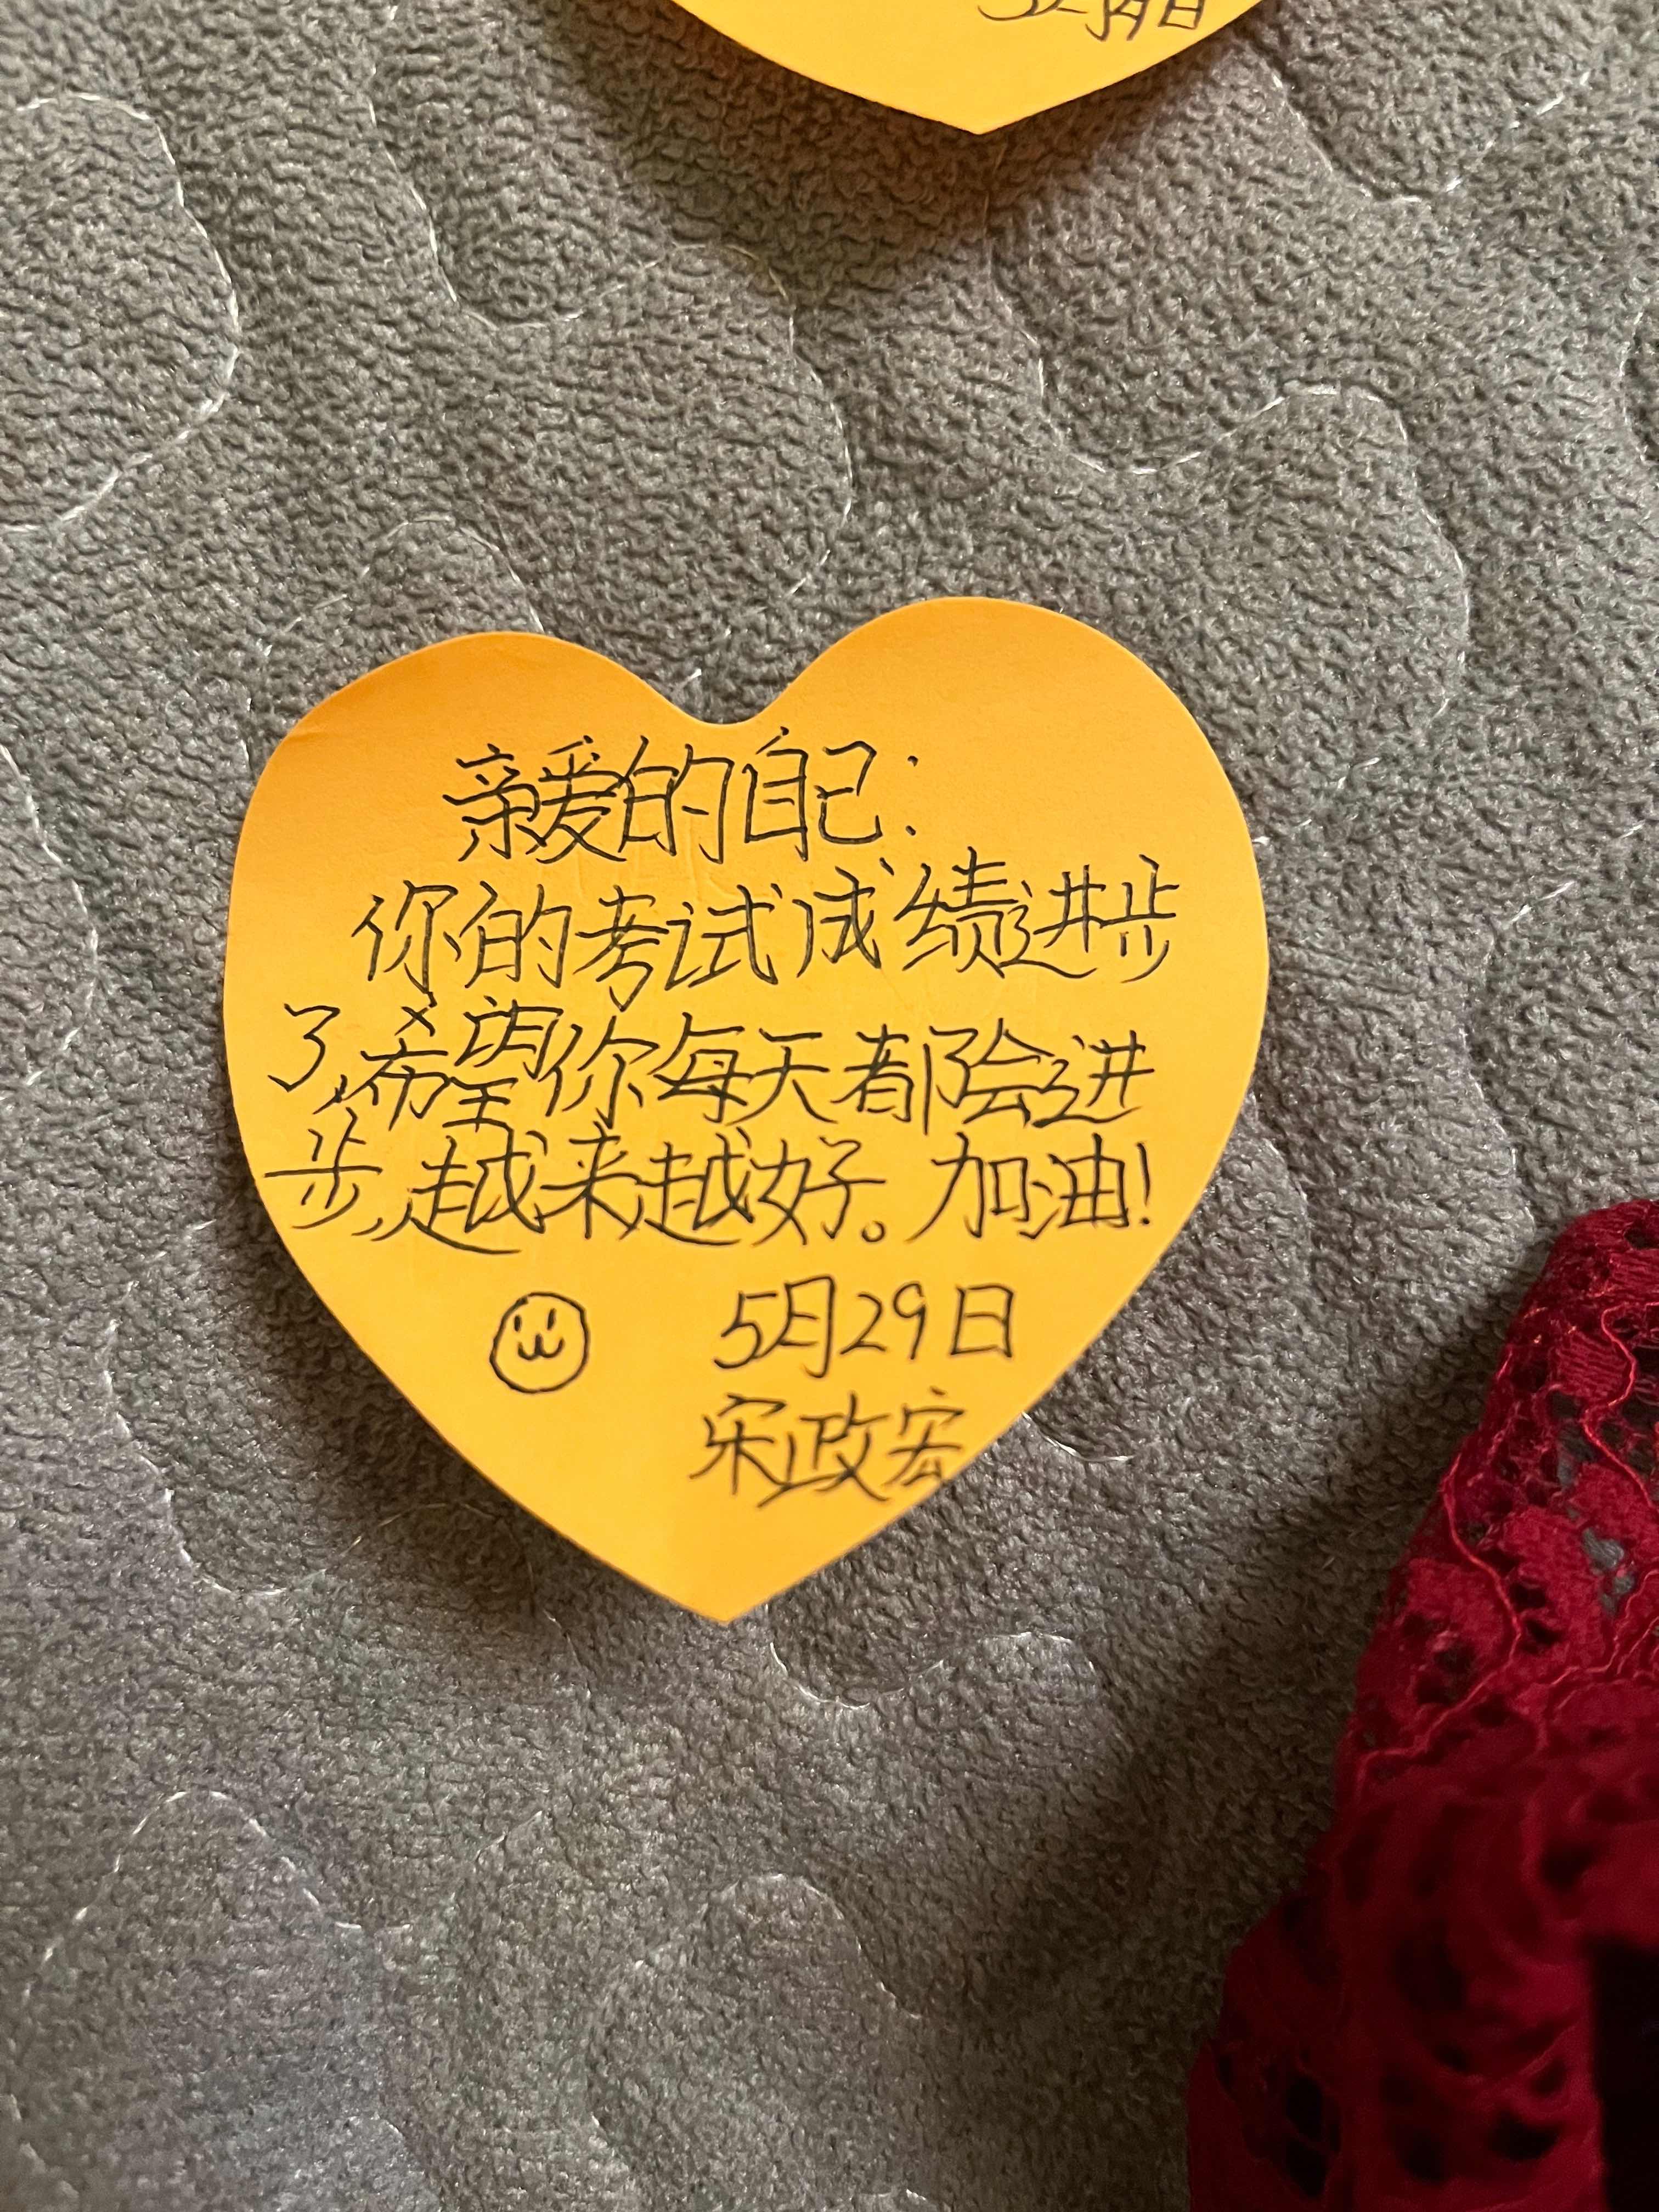 亲爱的自己：
你的考试成绩进步
了，希望你每天都会进
步，越来越好。加油！
5月29日
宋政宏